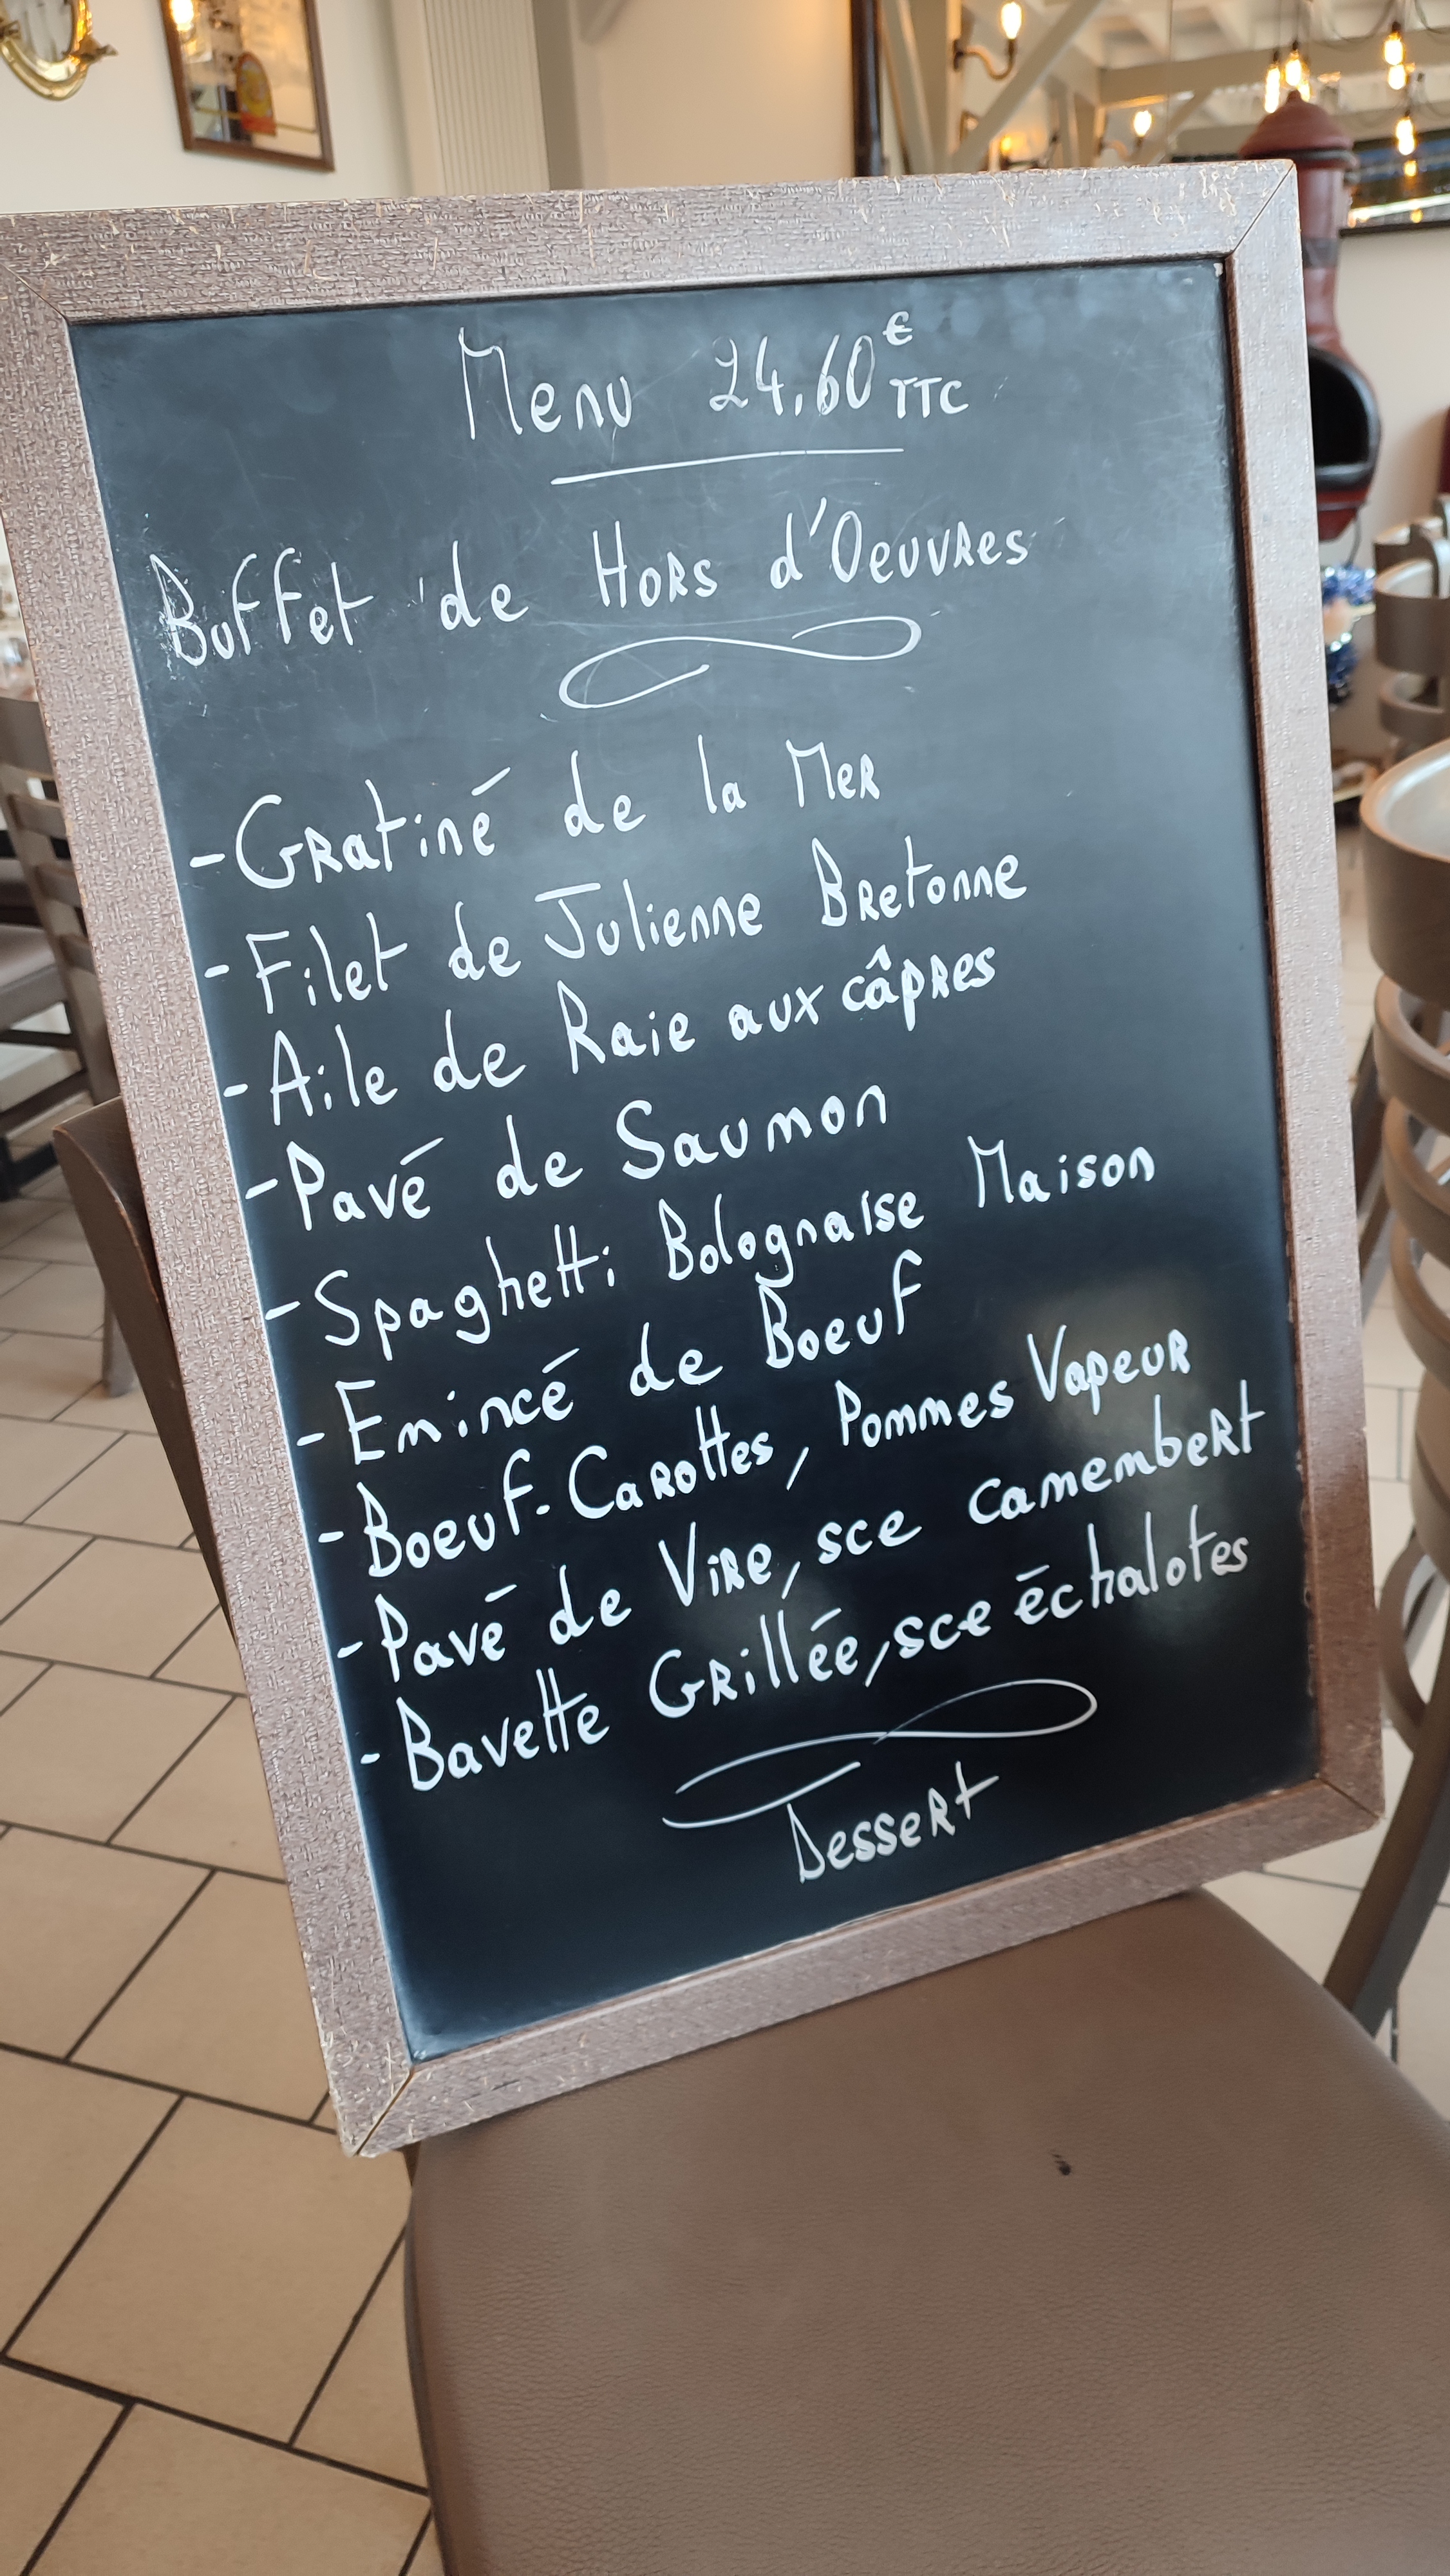 Menu 24,60€ TTC
Buffet de Hors d'Oeuvres
- Gratiné de la Mer
- Filet de Julienne Bretonne
- Aile de Raie aux câpres
- Pavé de Saumon
- Spaghetti Bolognaise Maison
- Emincé de Boeuf
- Boeuf-Carottes, Pommes Vapeur
- Pavé de Vire, sce camembert
- Bavette Grillée, sce échalotes
Dessert